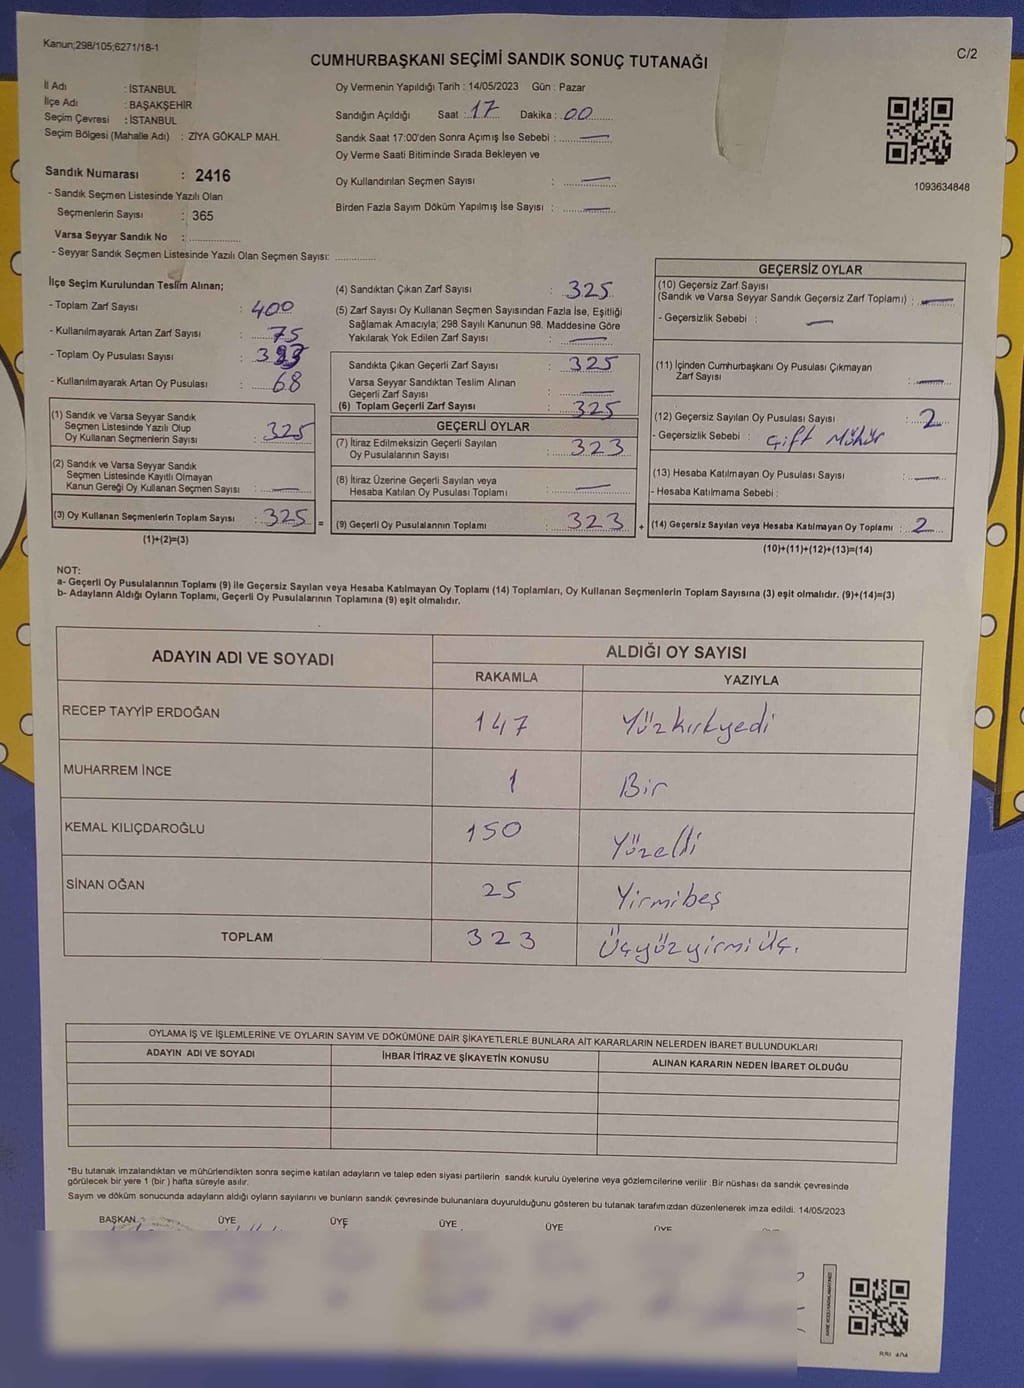 Kanun;298/105;6271/18-1
CUMHURBAŞKANI SEÇİMİ SANDIK SONUÇ TUTANAĞI
C/2
İl Adı : İSTANBUL
İlçe Adı : BAŞAKŞEHİR
Seçim Çevresi : İSTANBUL
Seçim Bölgesi (Mahalle Adı) : ZİYA GÖKALP MAH.
Sandık Numarası : 2416
- Sandık Seçmen Listesinde Yazılı Olan
Seçmenlerin Sayısı : 365
Varsa Seyyar Sandık No : ................
- Seyyar Sandık Seçmen Listesinde Yazılı Olan Seçmen Sayısı: ............
Oy Vermenin Yapıldığı Tarih : 14/05/2023 Gün : Pazar
Sandığın Açıldığı Saat : 17 Dakika : 00
Sandık Saat 17:00'den Sonra Açımış İse Sebebi : —
Oy Verme Saati Bitiminde Sırada Bekleyen ve
Oy Kullandırılan Seçmen Sayısı : —
Birden Fazla Sayım Döküm Yapılmış İse Sayısı : —
1093634848
İlçe Seçim Kurulundan Teslim Alınan;
- Toplam Zarf Sayısı : 400
- Kullanılmayarak Artan Zarf Sayısı : 75
- Toplam Oy Pusulası Sayısı : 393
- Kullanılmayarak Artan Oy Pusulası : 68
(1) Sandık ve Varsa Seyyar Sandık
Seçmen Listesinde Yazılı Olup
Oy Kullanan Seçmenlerin Sayısı : 325
(2) Sandık ve Varsa Seyyar Sandık
Seçmen Listesinde Kayıtlı Olmayan
Kanun Gereği Oy Kullanan Seçmen Sayısı : —
(3) Oy Kullanan Seçmenlerin Toplam Sayısı : 325 =
(1)+(2)=(3)
(4) Sandıktan Çıkan Zarf Sayısı : 325
(5) Zarf Sayısı Oy Kullanan Seçmen Sayısından Fazla İse, Eşitliği
Sağlamak Amacıyla; 298 Sayılı Kanunun 98. Maddesine Göre
Yakılarak Yok Edilen Zarf Sayısı : —
Sandıkta Çıkan Geçerli Zarf Sayısı : 325
Varsa Seyyar Sandıktan Teslim Alınan
Geçerli Zarf Sayısı : —
(6) Toplam Geçerli Zarf Sayısı : 325
GEÇERLİ OYLAR
(7) İtiraz Edilmeksizin Geçerli Sayılan
Oy Pusulalarının Sayısı : 323
(8) İtiraz Üzerine Geçerli Sayılan veya
Hesaba Katılan Oy Pusulası Toplamı : —
(9) Geçerli Oy Pusulalarının Toplamı : 323 +
GEÇERSİZ OYLAR
(10) Geçersiz Zarf Sayısı
(Sandık ve Varsa Seyyar Sandık Geçersiz Zarf Toplamı) : —
- Geçersizlik Sebebi : —
(11) İçinden Cumhurbaşkanı Oy Pusulası Çıkmayan
Zarf Sayısı : —
(12) Geçersiz Sayılan Oy Pusulası Sayısı : 2
- Geçersizlik Sebebi : Çift Mühür
(13) Hesaba Katılmayan Oy Pusulası Sayısı : —
- Hesaba Katılmama Sebebi :
(14) Geçersiz Sayılan veya Hesaba Katılmayan Oy Toplamı : 2
(10)+(11)+(12)+(13)=(14)
NOT:
a- Geçerli Oy Pusulalarının Toplamı (9) ile Geçersiz Sayılan veya Hesaba Katılmayan Oy Toplamı (14) Toplamları, Oy Kullanan Seçmenlerin Toplam Sayısına (3) eşit olmalıdır. (9)+(14)=(3)
b- Adayların Aldığı Oyların Toplamı, Geçerli Oy Pusulalarının Toplamına (9) eşit olmalıdır.
ADAYIN ADI VE SOYADI
ALDIĞI OY SAYISI
RAKAMLA YAZIYLA
RECEP TAYYİP ERDOĞAN 147 Yüzkırkyedi
MUHARREM İNCE 1 Bir
KEMAL KILIÇDAROĞLU 150 Yüzelli
SİNAN OĞAN 25 Yirmibeş
TOPLAM 323 Üçyüzyirmi üç.
OYLAMA İŞ VE İŞLEMLERİNE VE OYLARIN SAYIM VE DÖKÜMÜNE DAİR ŞİKAYETLERLE BUNLARA AİT KARARLARIN NELERDEN İBARET BULUNDUKLARI
ADAYIN ADI VE SOYADI İHBAR İTİRAZ VE ŞİKAYETİN KONUSU ALINAN KARARIN NEDEN İBARET OLDUĞU
*Bu tutanak imzalandıktan ve mühürlendikten sonra seçime katılan adayların ve talep eden siyasi partilerin sandık kurulu üyelerine veya gözlemcilerine verilir .Bir nüshası da sandık çevresinde
görülecek bir yere 1 (bir ) hafta süreyle asılır.
Sayım ve döküm sonucunda adayların aldığı oyların sayılarını ve bunların sandık çevresinde bulunanlara duyurulduğunu gösteren bu tutanak tarafımızdan düzenlenerek imza edildi. 14/05/2023
BAŞKAN ÜYE ÜYE ÜYE ÜYE ÜYE